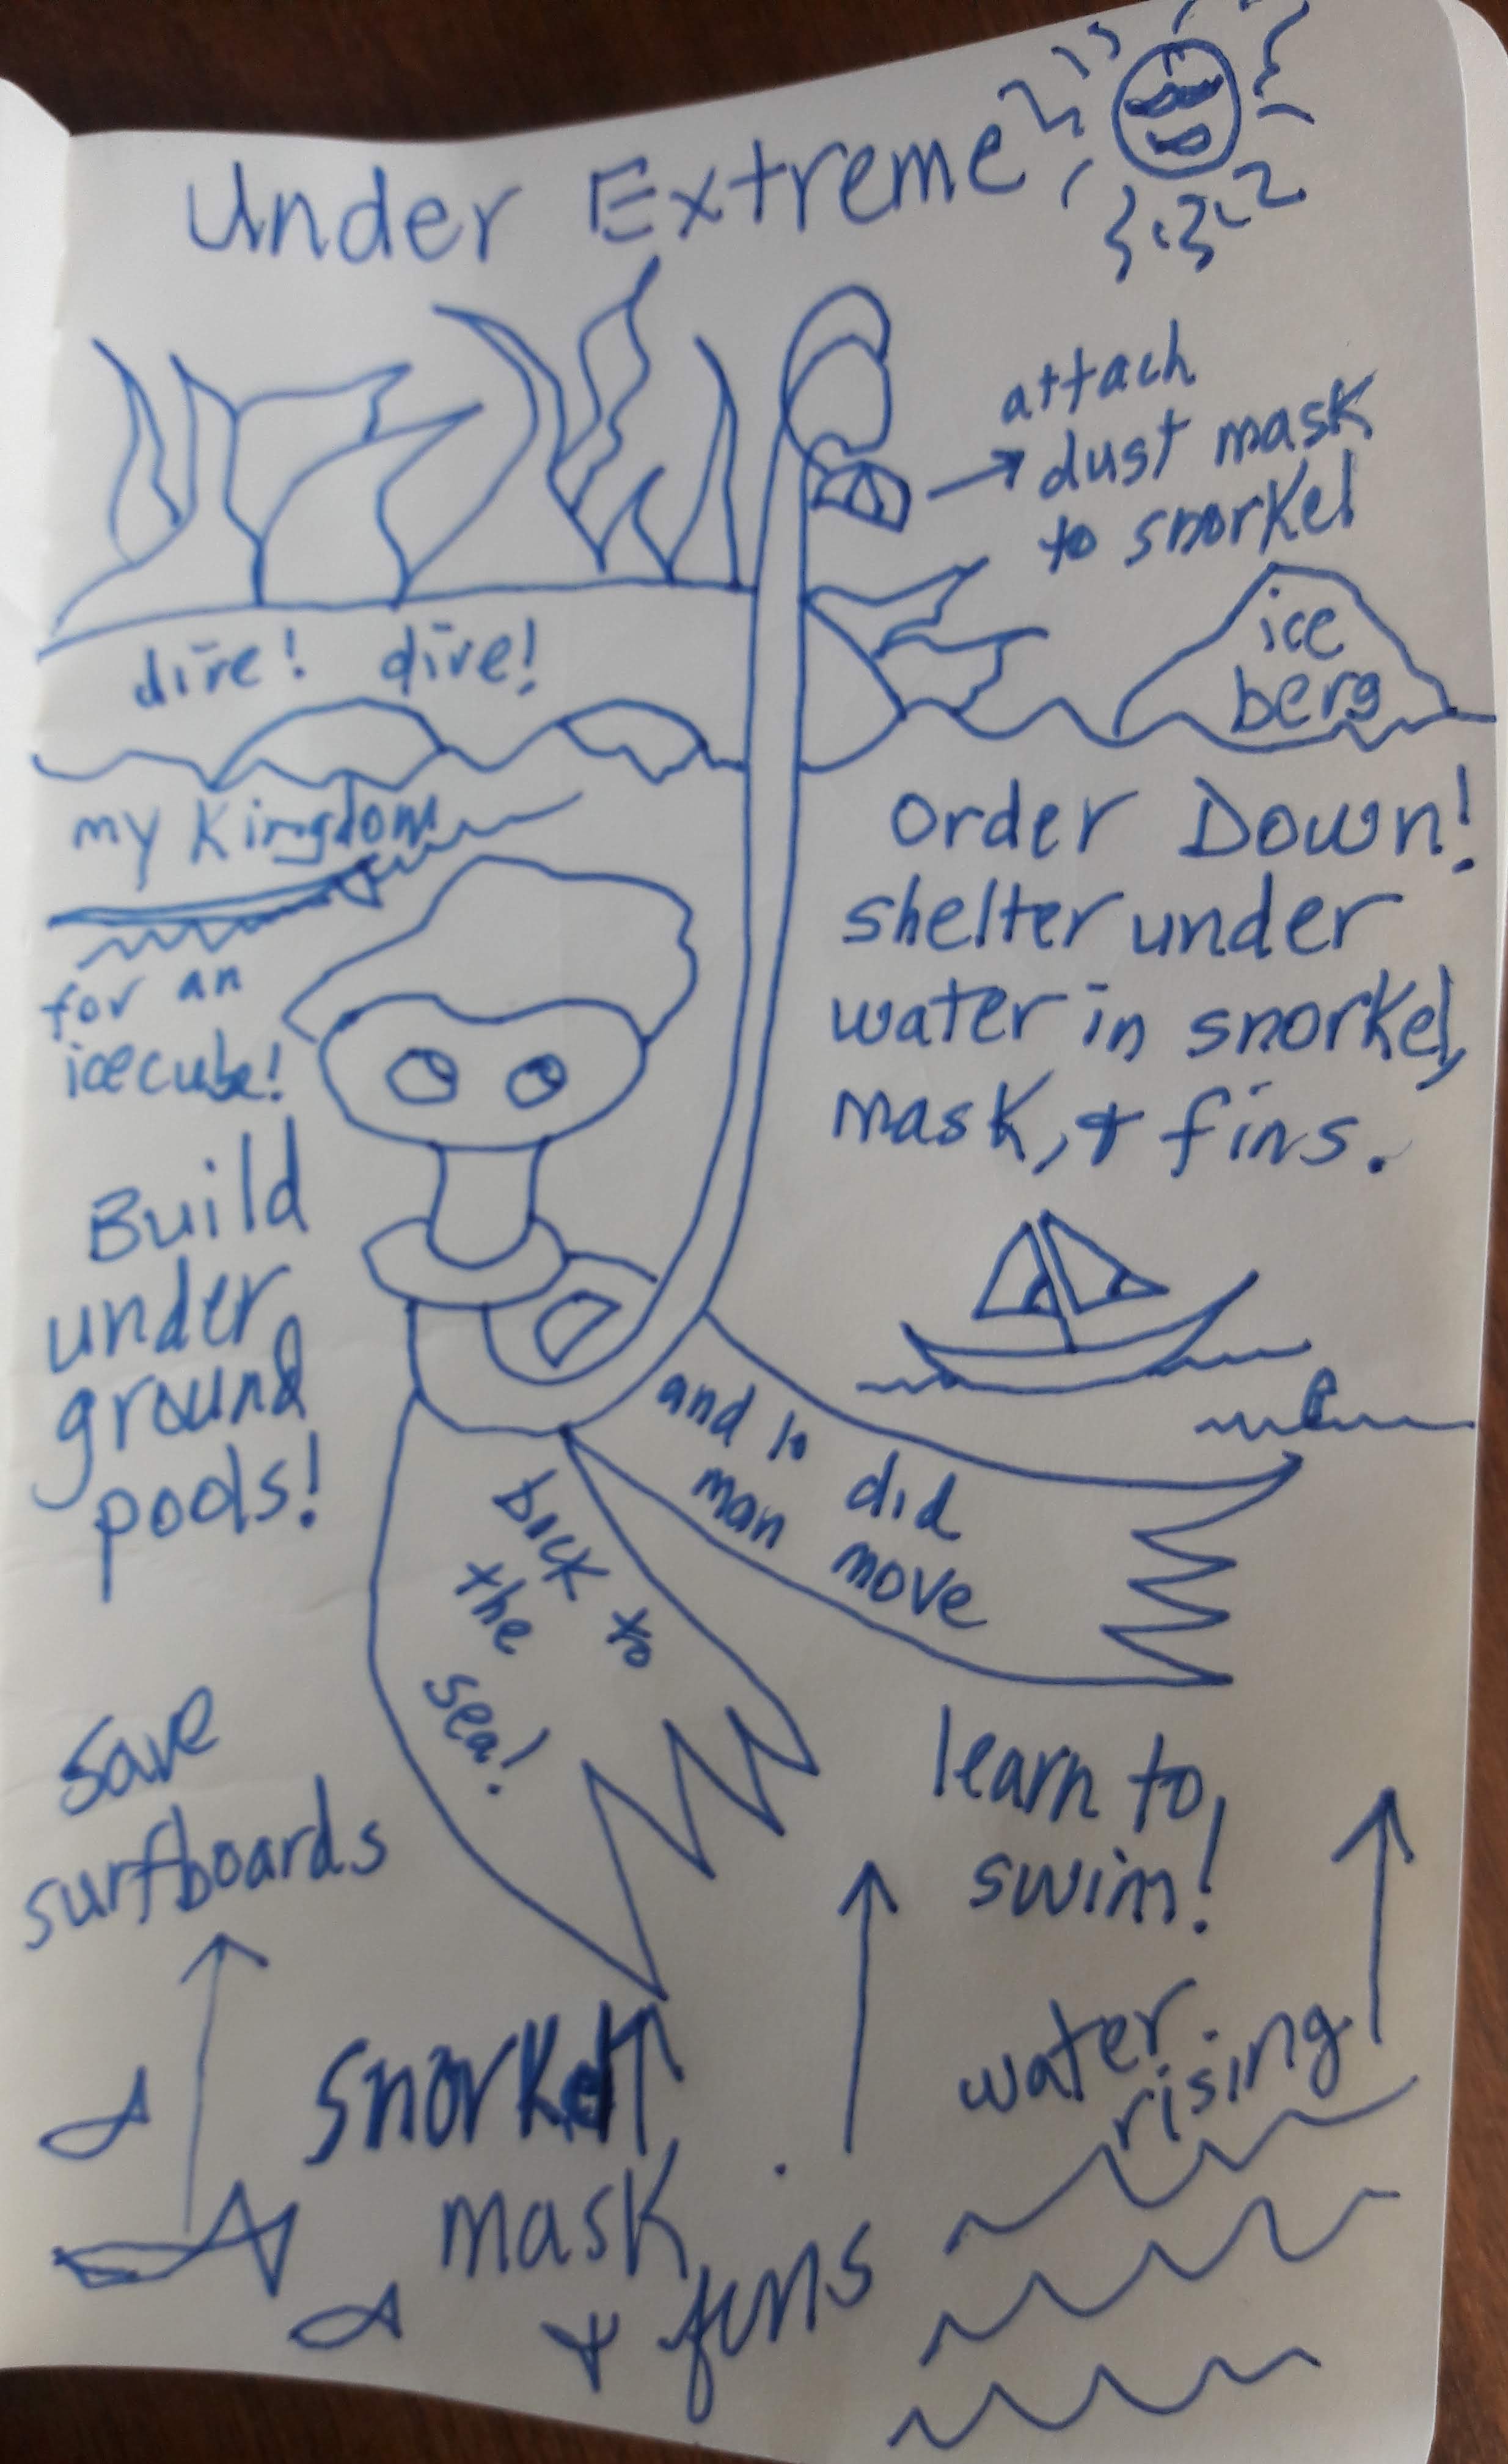 Under Extreme
attach
dust mask
to snorkel
dive! dive!
ice
berg
my Kingdom
for an
icecube!
Order Down!
shelter under
water in snorkel,
mask, & fins.
Build
under
ground
pools!
and lo did
man move
back to
the
sea!
Save
surfboards
learn to
swim!
water
rising
snorkel
mask
& fins